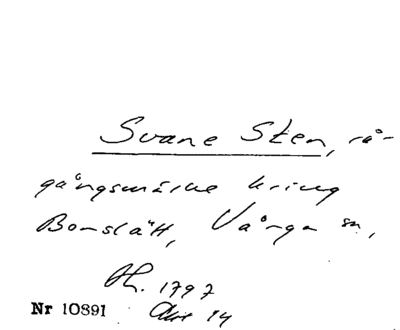 Svane Sten, rå-
gångsmärke kring
Bonslätt, Vånga sn,
Ch. 1797
Nr 10891 Akt 14